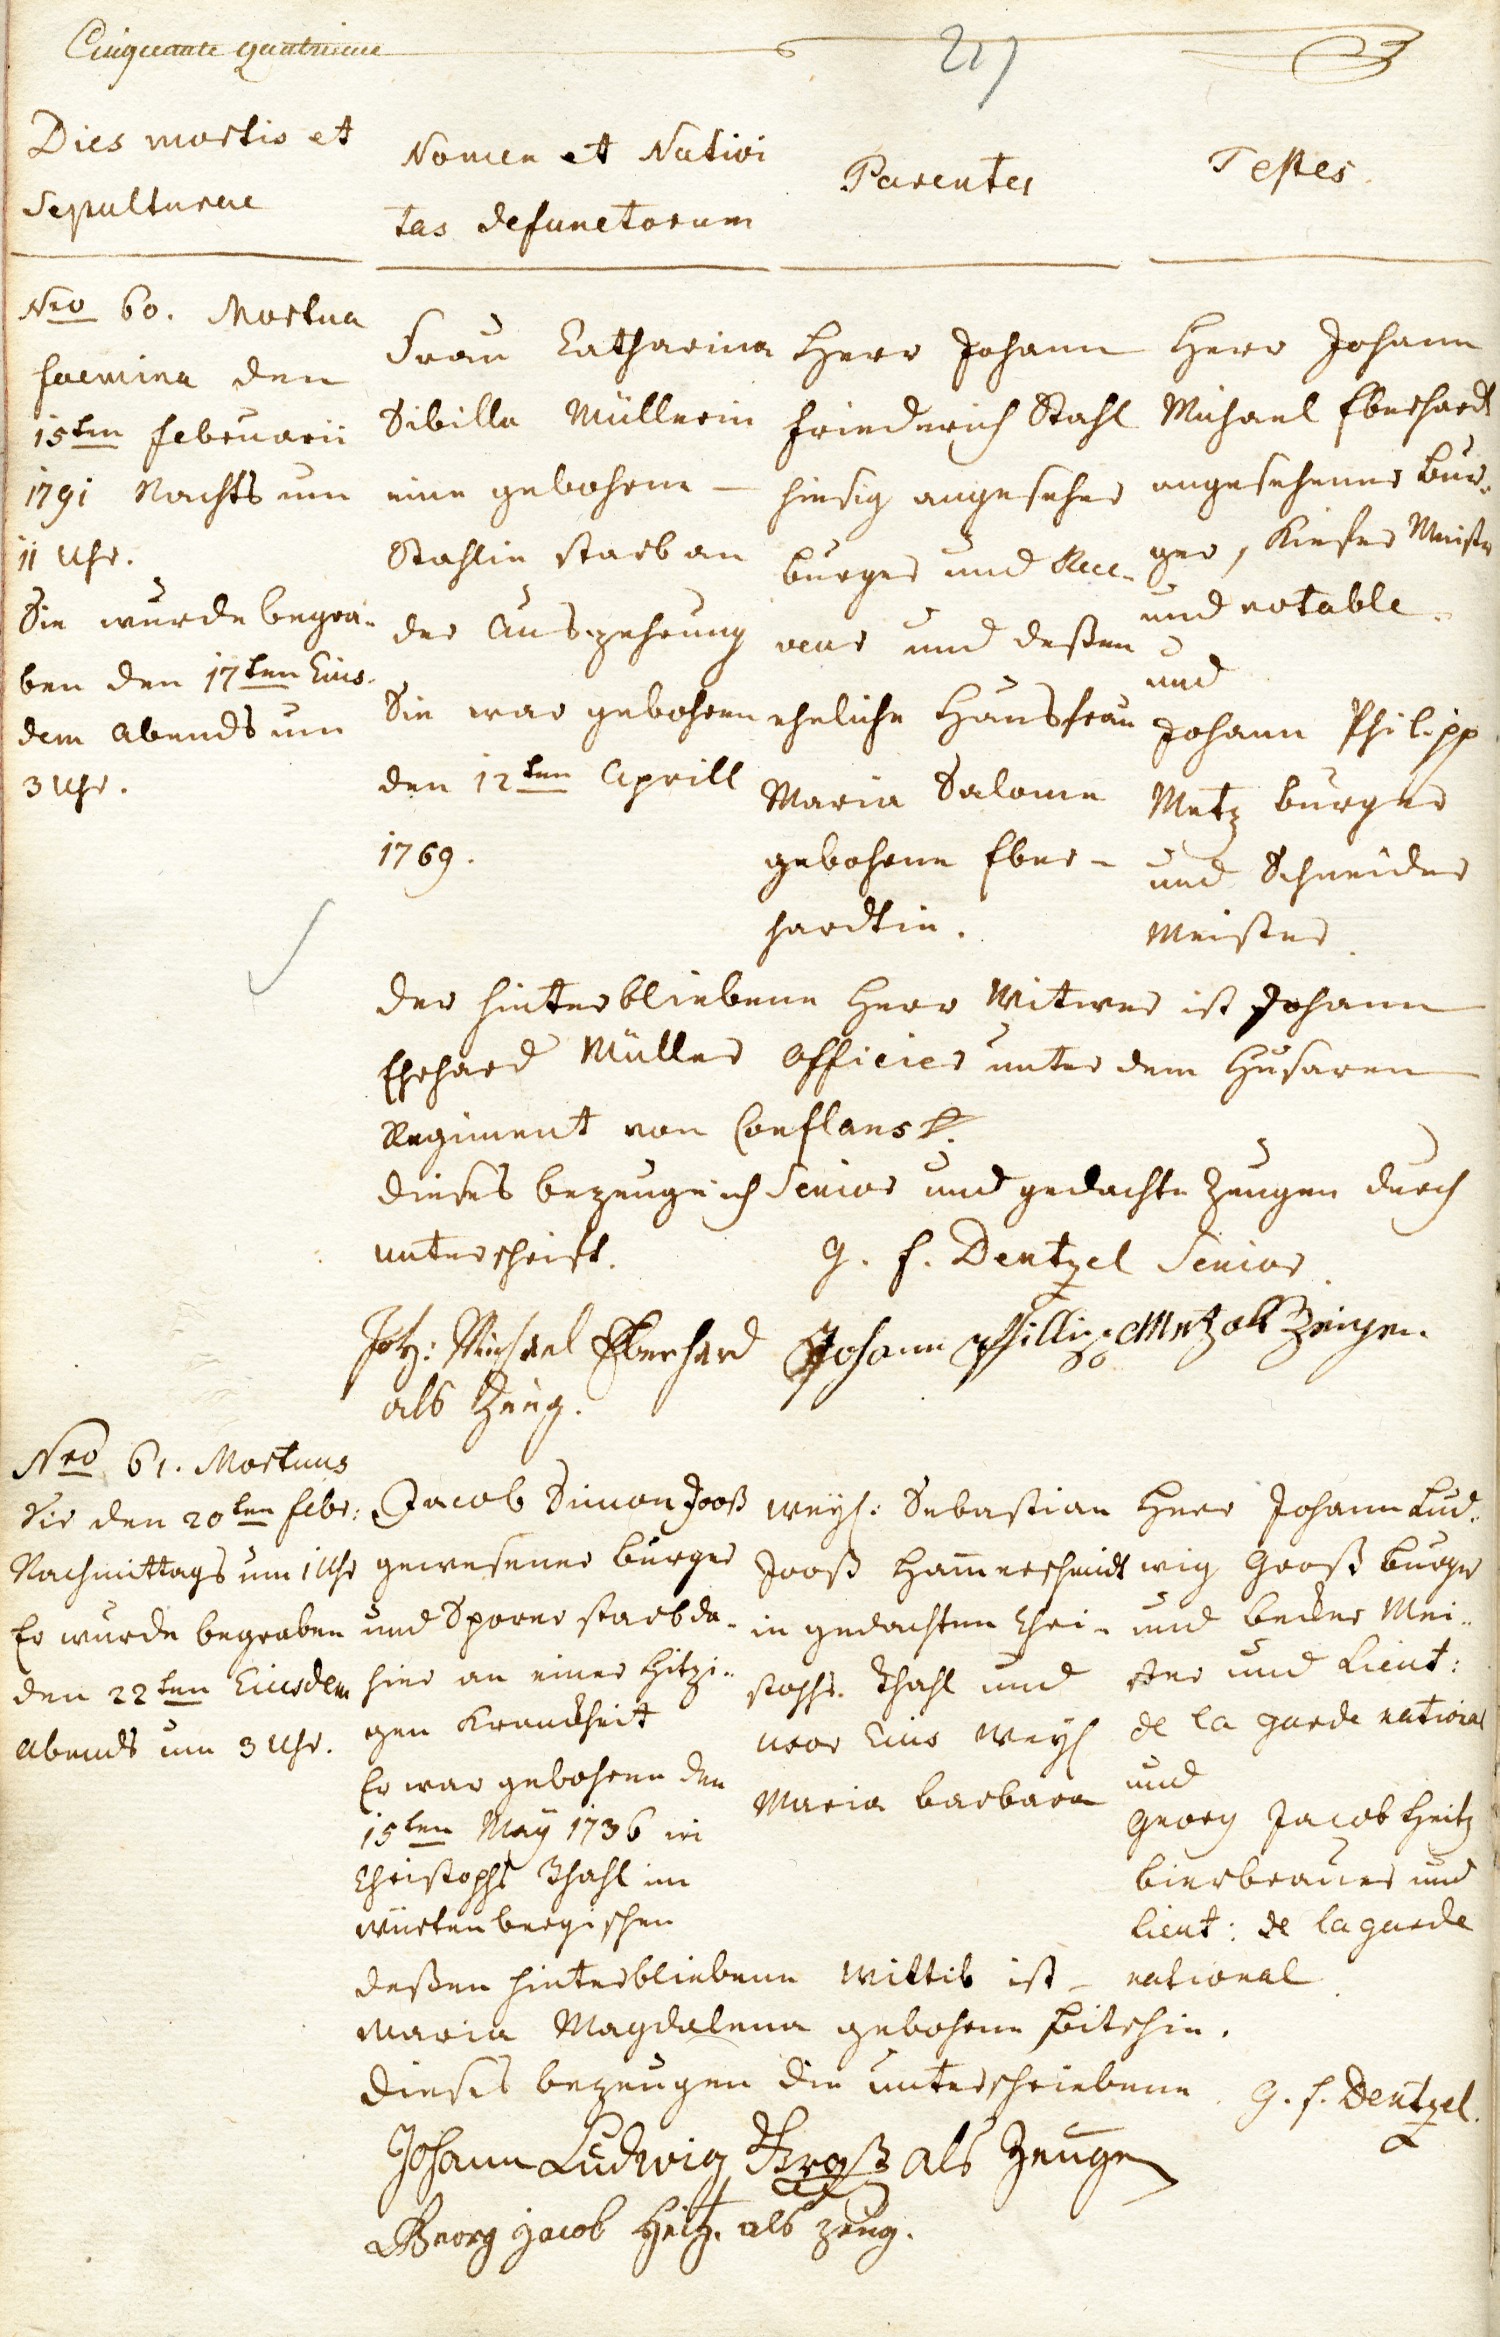 Cinquante quatrieme
217
Dies mortis et
Sepulturae
Nomen et Nativi
tas defunctorum
Parentes
Testes.
Nro 60. Mortua
foemina den
15ten februarii
1791 Nachts um
11 Uhr.
Sie wurde begra-
ben den 17ten Eius-
dem abends um
3 Uhr.
Frau Catharina
Sibilla Müllerin
eine gebohrne –
Stahlin starb an
der Auszehrung
Sie war gebohren
den 12ten Aprill
1769.
Herr Johann
Friederich Stahl
hiesig angesehner
burger und Rece-
veur und deßen
eheliche Hausfrau
Maria Salome
gebohrne Eber-
hardtin.
Herr Johann
Michael Eberhardt
angesehener bur-
ger, Kiefer Meister
und notable.
und
Johann Philipp
Metz burger
und Schneider
Meister.
der hinterbliebene Herr Witwer ist Johann
Ehrhard Müller officier unter dem Husaren
Regiment von Conflans
dieses bezeuge ich Senior und gedachte Zeugen durch
unterschrift.
G. F. Dentzel Senior.
Joh: Michael Eberhard
als Zeug.
Johann Phillip: Metz als Zeigen.
Nro 61. Mortuus
Vir den 20ten febr:
Nachmittags um 1 Uhr
Er wurde begraben
den 22ten Eiusdem
abends um 3 Uhr.
Jacob Simon Jooß
gewesener burger
und Sporer starb da-
hier an einer Hitzi-
gen Kranckheit
Er war gebohren den
15ten May 1736 in
Christophs Thahl im
würtenbergischen
weyl: Sebastian
Jooß Ham̅erschmidt
in gedachten Chri-
stophs. Thahl und
uxor Eius weyl
Maria barbara
Herr Johann Lud-
wig Grooß burger
und becker Mei-
ster und Lieut:
de la garde national
und
Georg Jacob Heitz
bierbrauer und
Lieut: de la garde
national.
deßen hinterbliebene Wittib ist –
Maria Magdalena gebohrne
dieses bezeugen die unterschriebene.
G. F. Dentzel.
Johann Ludwig Groß als Zeuge
Georg Jacob Heitz. als zeug.